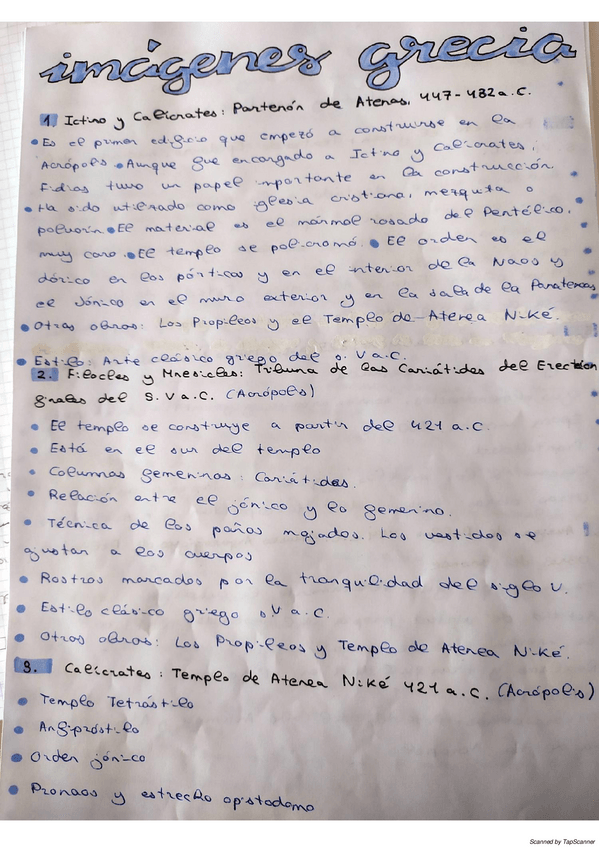 imágenes grecia
1. Ictino y Calícrates: Partenón de Atenas, 447-432 a.C.
• Es el primer edificio que empezó a construirse en la
Acrópolis • Aunque fue encargado a Ictino y Calícrates,
Fidias tuvo un papel importante en la construcción.
• Ha sido utilizado como iglesia cristiana, mezquita o
polvorín • El material es el mármol rosado del Pentélico,
muy caro. • El templo se policromó. • El orden es el
dórico en los pórticos y en el interior de la Naos y
el Jónico en el muro exterior y en la sala de la Panateneas
• Otras obras: Los Propileos y el Templo de Atenea Niké.
• Estilo: Arte clásico griego del s. V a.C.
2. Filocles y Mnesicles: Tribuna de las Cariátides del Erecteion
finales del S. V a.C. (Acrópolis)
• El templo se construye a partir del 421 a.C.
• Está en el sur del templo
• Columnas femeninas: Cariátides.
• Relación entre el jónico y lo femenino.
• Técnica de los paños mojados. Los vestidos se
ajustan a los cuerpos
• Rostros marcados por la tranquilidad del siglo V.
• Estilo clásico griego s.V a.C.
• Otros obros: Los Propileos y Templo de Atenea Niké.
3. Calícrates: Templo de Atenea Niké 421 a.C. (Acrópolis)
• Templo Tetrástilo
• Anfipróstilo
• Orden jónico
• Pronaos y estrecho opistodomo
Scanned by TapScanner